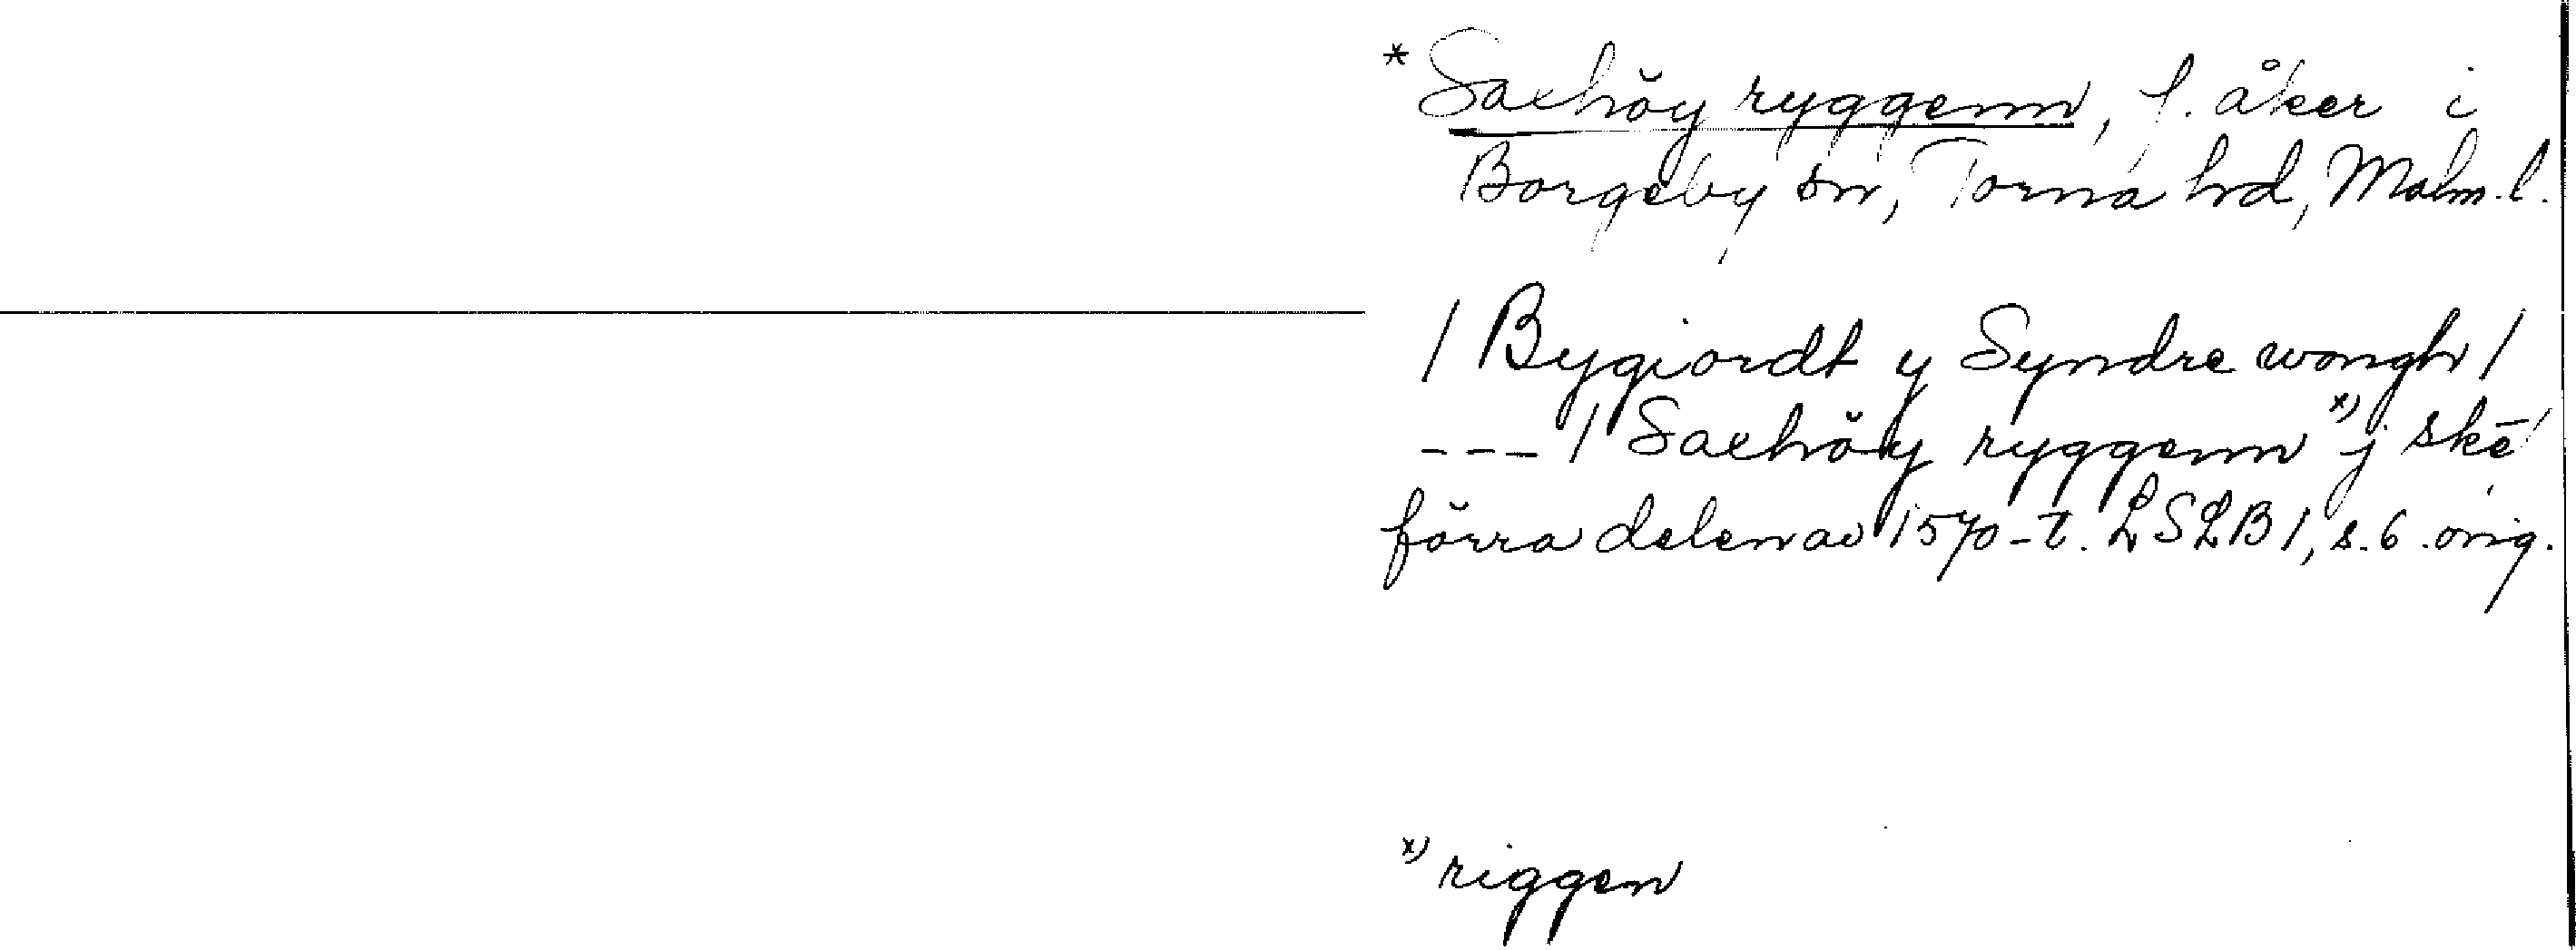 * Saxhöy ryggenn, f. åker i
Borgeby sn, Torna hd, Malm. l.
/ Bygiordt y Syndre wongh /
--- / Saxhöy ryggenn x) j skē /
förra delen av 1570-t. LSLB 1, s. 6. orig.
x) riggen